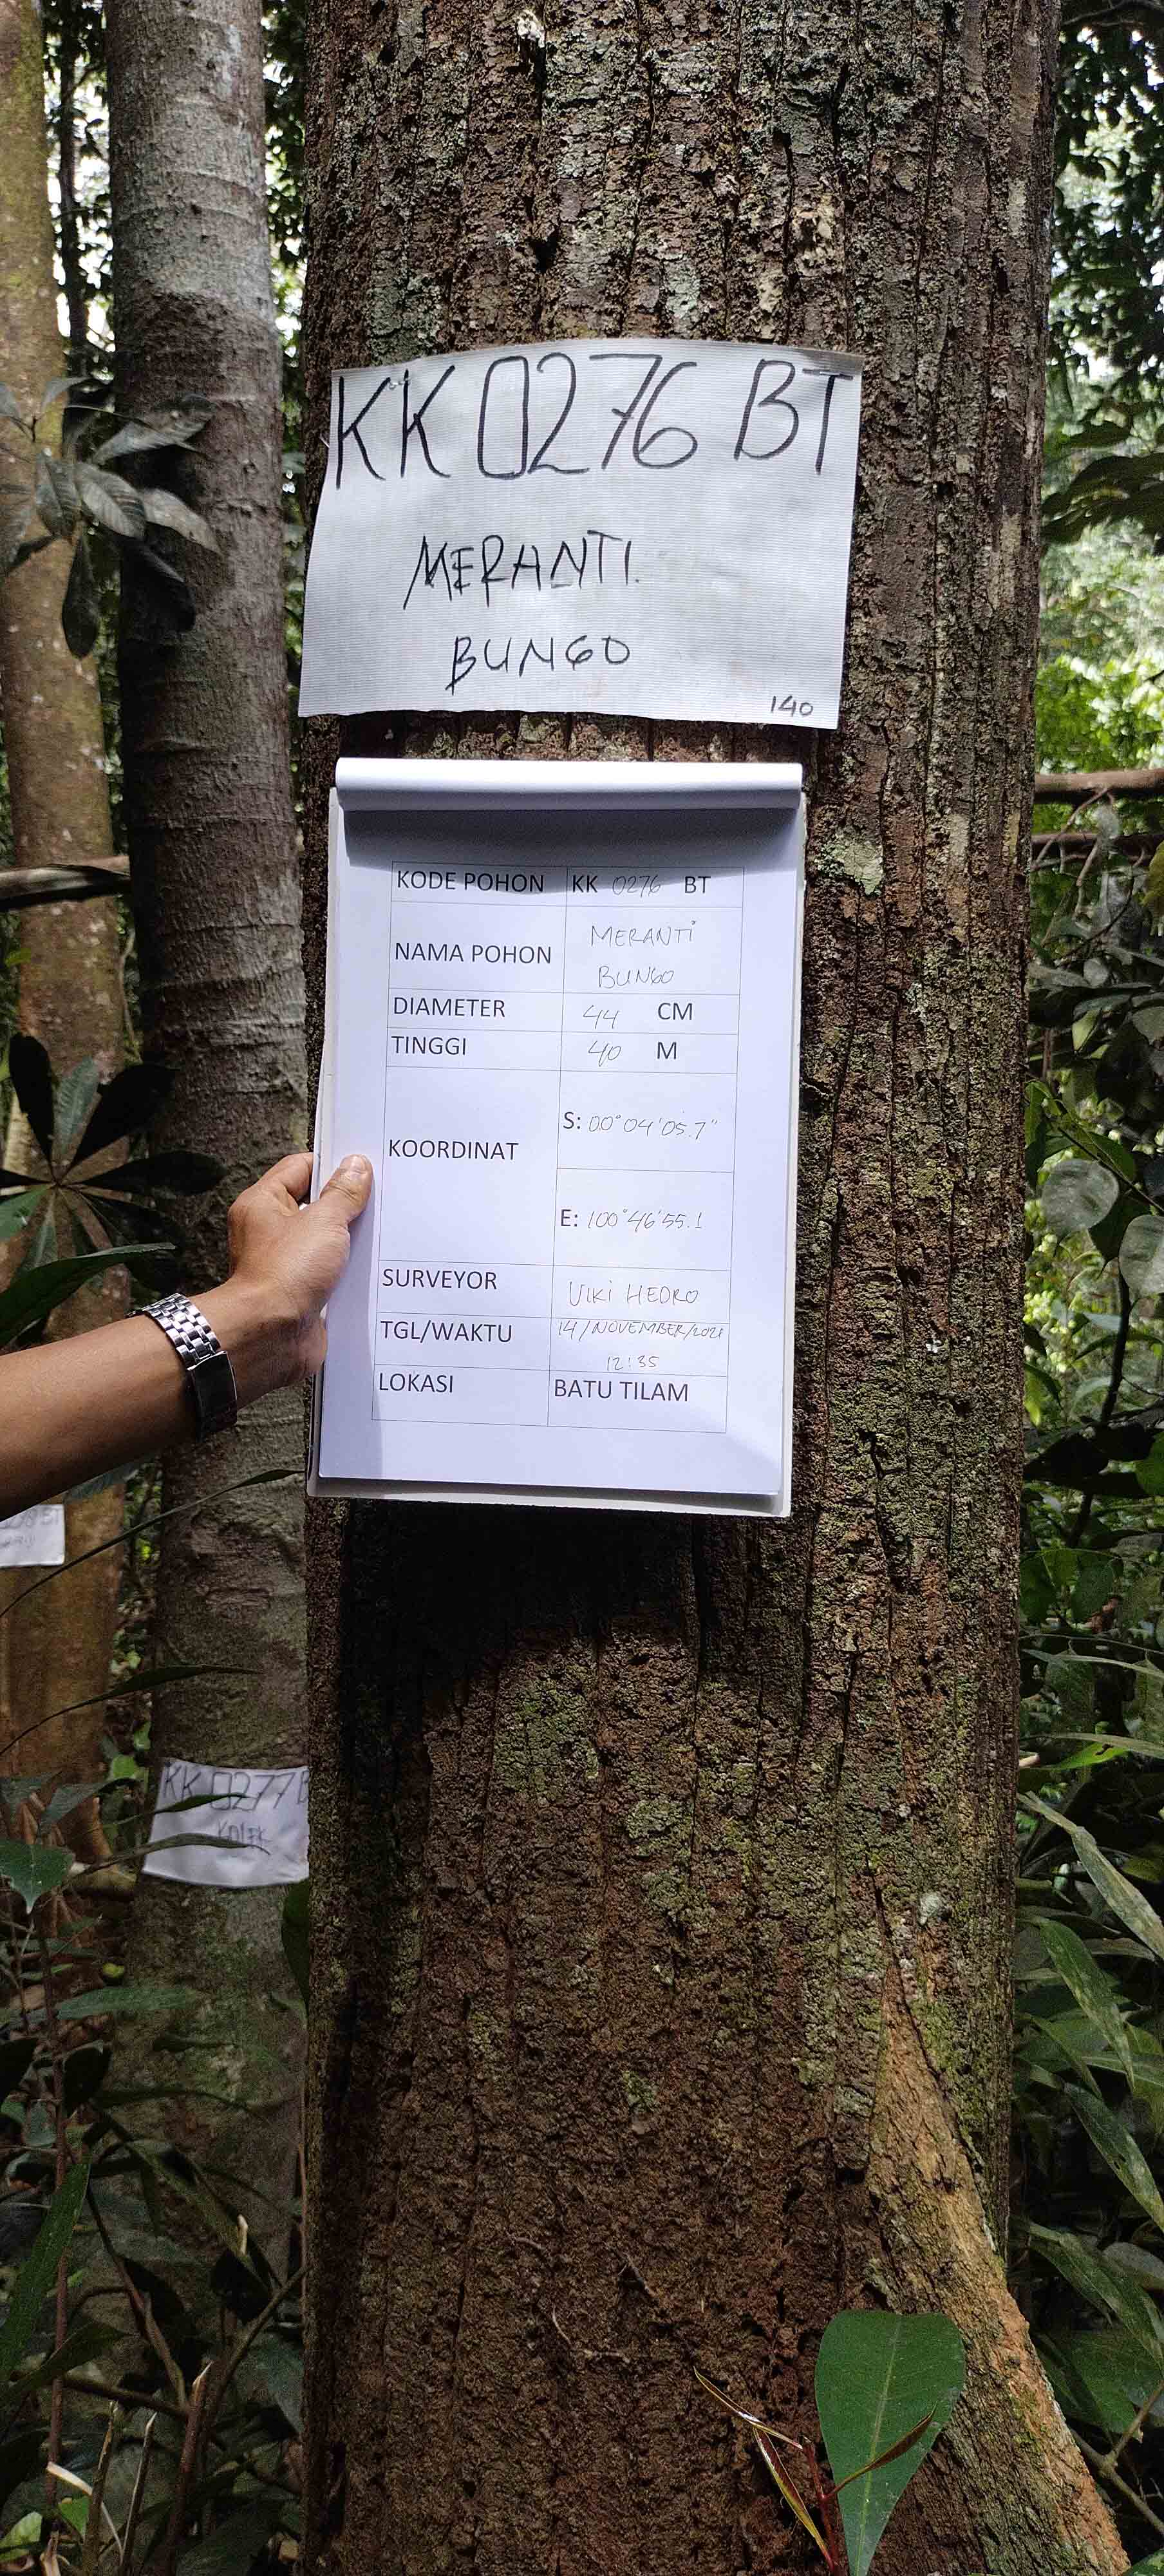 KK 0276 BT
MERANTI
BUNGO
140
KODE POHON KK 0276 BT
NAMA POHON MERANTI
BUNGO
DIAMETER 44 CM
TINGGI 40 M
KOORDINAT
S: 00°04'05.7"
E: 100°46'55.1
SURVEYOR VIKI HEDRO
TGL/WAKTU 14/NOVEMBER/2021
12:35
LOKASI BATU TILAM
KK 0277 B